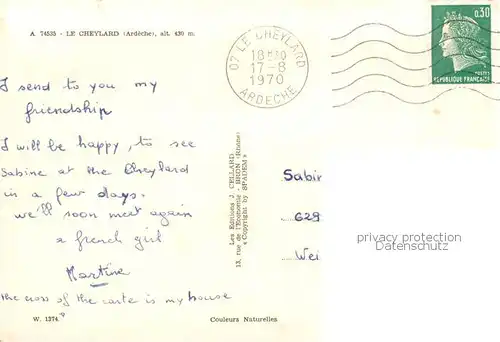 A 74535 - LE CHEYLARD (Ardèche), alt. 430 m.
07 LE CHEYLARD
18H30
17-8
1970
ARDECHE
0,30
POSTES
REPUBLIQUE FRANÇAISE
I send to you my
friendship
I will be happy, to see
Sabine at the Cheylard
in a few days.
we'll soon meet again
a french girl
Martine
the cross of the carte is my house
Les Editions J. CELLARD
13, rue de l'Economie - BRON (Rhône)
« Copyright by SPADEM »
Sabin
629
Wei
privacy protection
Datenschutz
W. 1374
Couleurs Naturelles